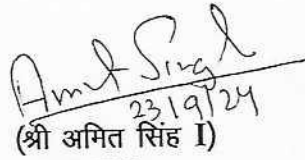 Amit Singh
23/9/24
(श्री अमित सिंह I)